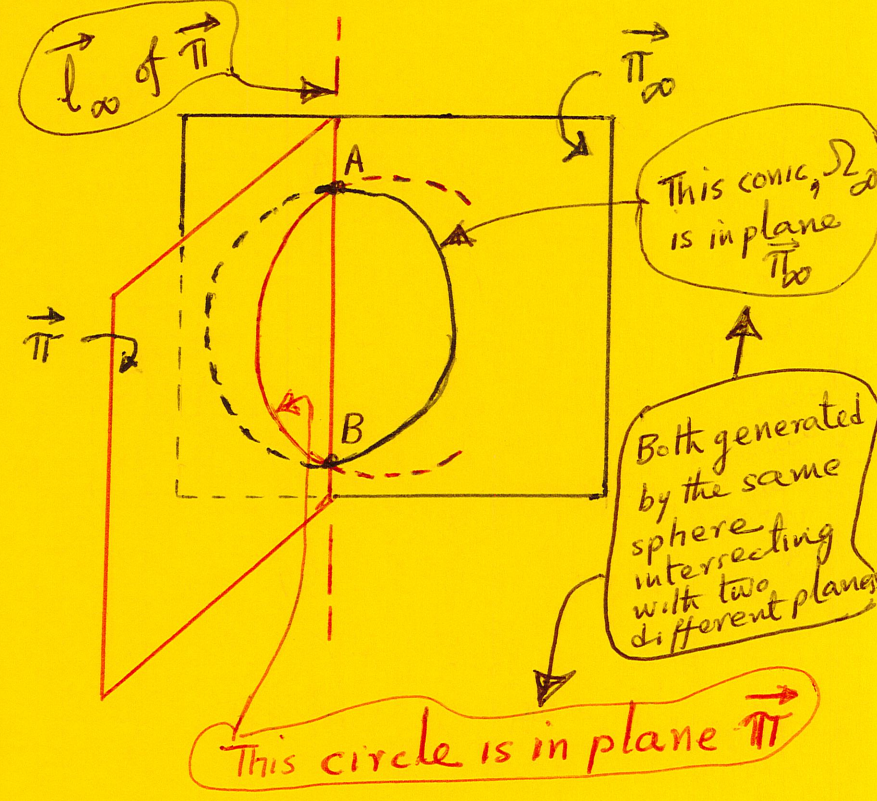 l∞ of π
π∞
A
This conic, Ω∞
is in plane
π∞
π
B
Both generated
by the same
sphere
intersecting
with two
different planes
This circle is in plane π